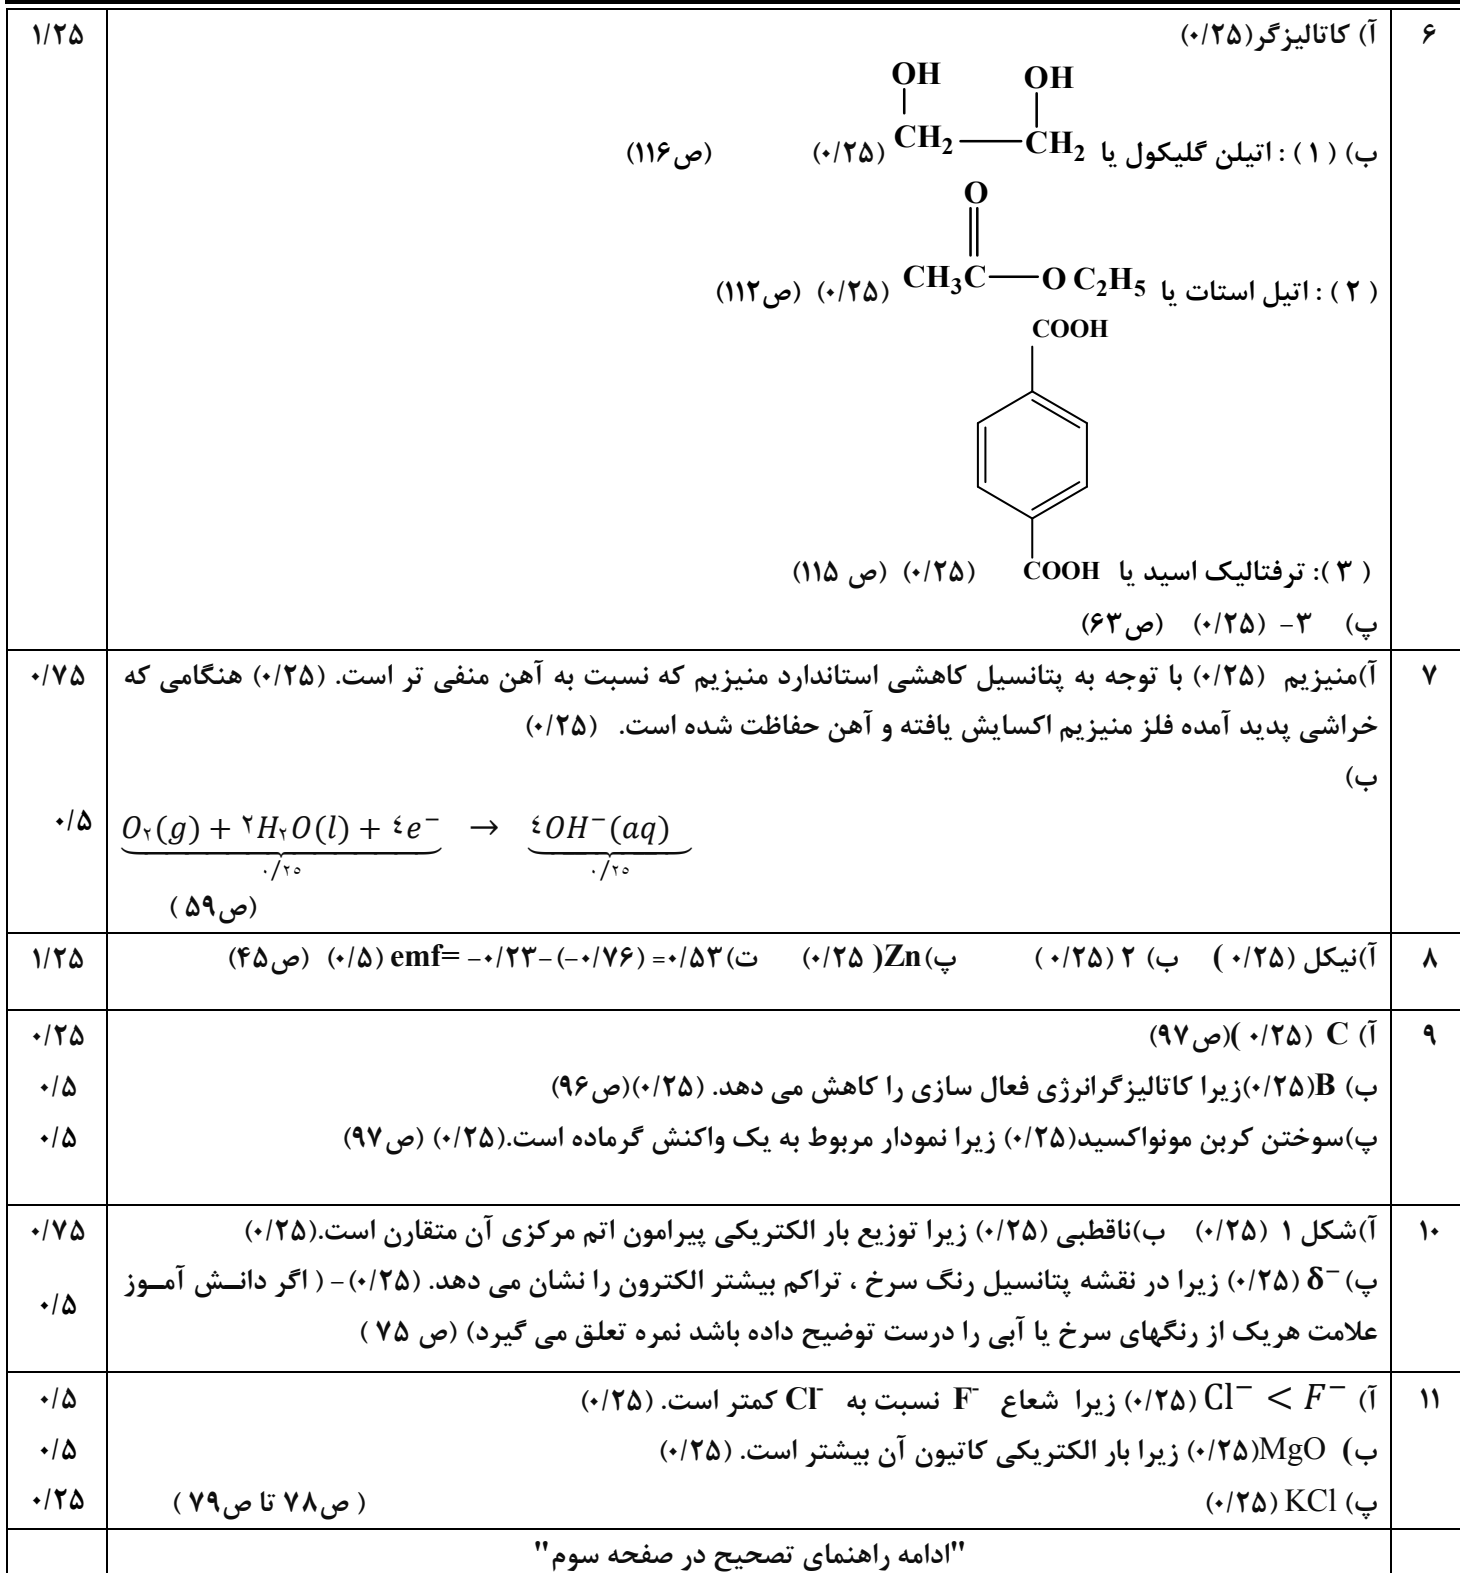 ۶
آ) کاتالیزگر(۰/۲۵)
۱/۲۵
OH OH
ب) (۱) : اتیلن گلیکول یا CH₂——CH₂ (۰/۲۵) (ص۱۱۶)
O
(۲) : اتیل استات یا CH₃C——O C₂H₅ (۰/۲۵) (ص۱۱۲)
COOH
(۳): ترفتالیک اسید یا COOH (۰/۲۵) (ص ۱۱۵)
پ) ۳- (۰/۲۵) (ص۶۳)
۷
آ)منیزیم (۰/۲۵) با توجه به پتانسیل کاهشی استاندارد منیزیم که نسبت به آهن منفی تر است. (۰/۲۵) هنگامی که
۰/۷۵
خراشی پدید آمده فلز منیزیم اکسایش یافته و آهن حفاظت شده است. (۰/۲۵)
ب)
O₂(g) + ۲H₂O(l) + ٤e⁻ → ٤OH⁻(aq)
۰/۵
۰/۲۵ ۰/۲۵
(ص۵۹ )
۸
آ)نیکل (۰/۲۵ ) ب) ۲ (۰/۲۵ ) پ)Zn( ۰/۲۵) ت)emf= -۰/۲۳-(-۰/۷۶) =۰/۵۳ (۰/۵) (ص۴۵)
۱/۲۵
۹
آ) C (۰/۲۵ )(ص۹۷)
۰/۲۵
ب) B(۰/۲۵)زیرا کاتالیزگرانرژی فعال سازی را کاهش می دهد. (۰/۲۵)(ص۹۶)
۰/۵
پ)سوختن کربن مونواکسید(۰/۲۵) زیرا نمودار مربوط به یک واکنش گرماده است.(۰/۲۵) (ص۹۷)
۰/۵
۱۰
آ)شکل ۱ (۰/۲۵) ب)ناقطبی (۰/۲۵) زیرا توزیع بار الکتریکی پیرامون اتم مرکزی آن متقارن است.(۰/۲۵)
۰/۷۵
پ) δ⁻ (۰/۲۵) زیرا در نقشه پتانسیل رنگ سرخ ، تراکم بیشتر الکترون را نشان می دهد. (۰/۲۵)- ( اگر دانــش آمــوز
۰/۵
علامت هریک از رنگهای سرخ یا آبی را درست توضیح داده باشد نمره تعلق می گیرد) (ص ۷۵ )
۱۱
آ) Cl⁻ < F⁻ (۰/۲۵) زیرا شعاع F⁻ نسبت به Cl⁻ کمتر است. (۰/۲۵)
۰/۵
ب) MgO(۰/۲۵) زیرا بار الکتریکی کاتیون آن بیشتر است. (۰/۲۵)
۰/۵
پ) KCl (۰/۲۵) ( ص۷۸ تا ص۷۹ )
۰/۲۵
"ادامه راهنمای تصحیح در صفحه سوم"